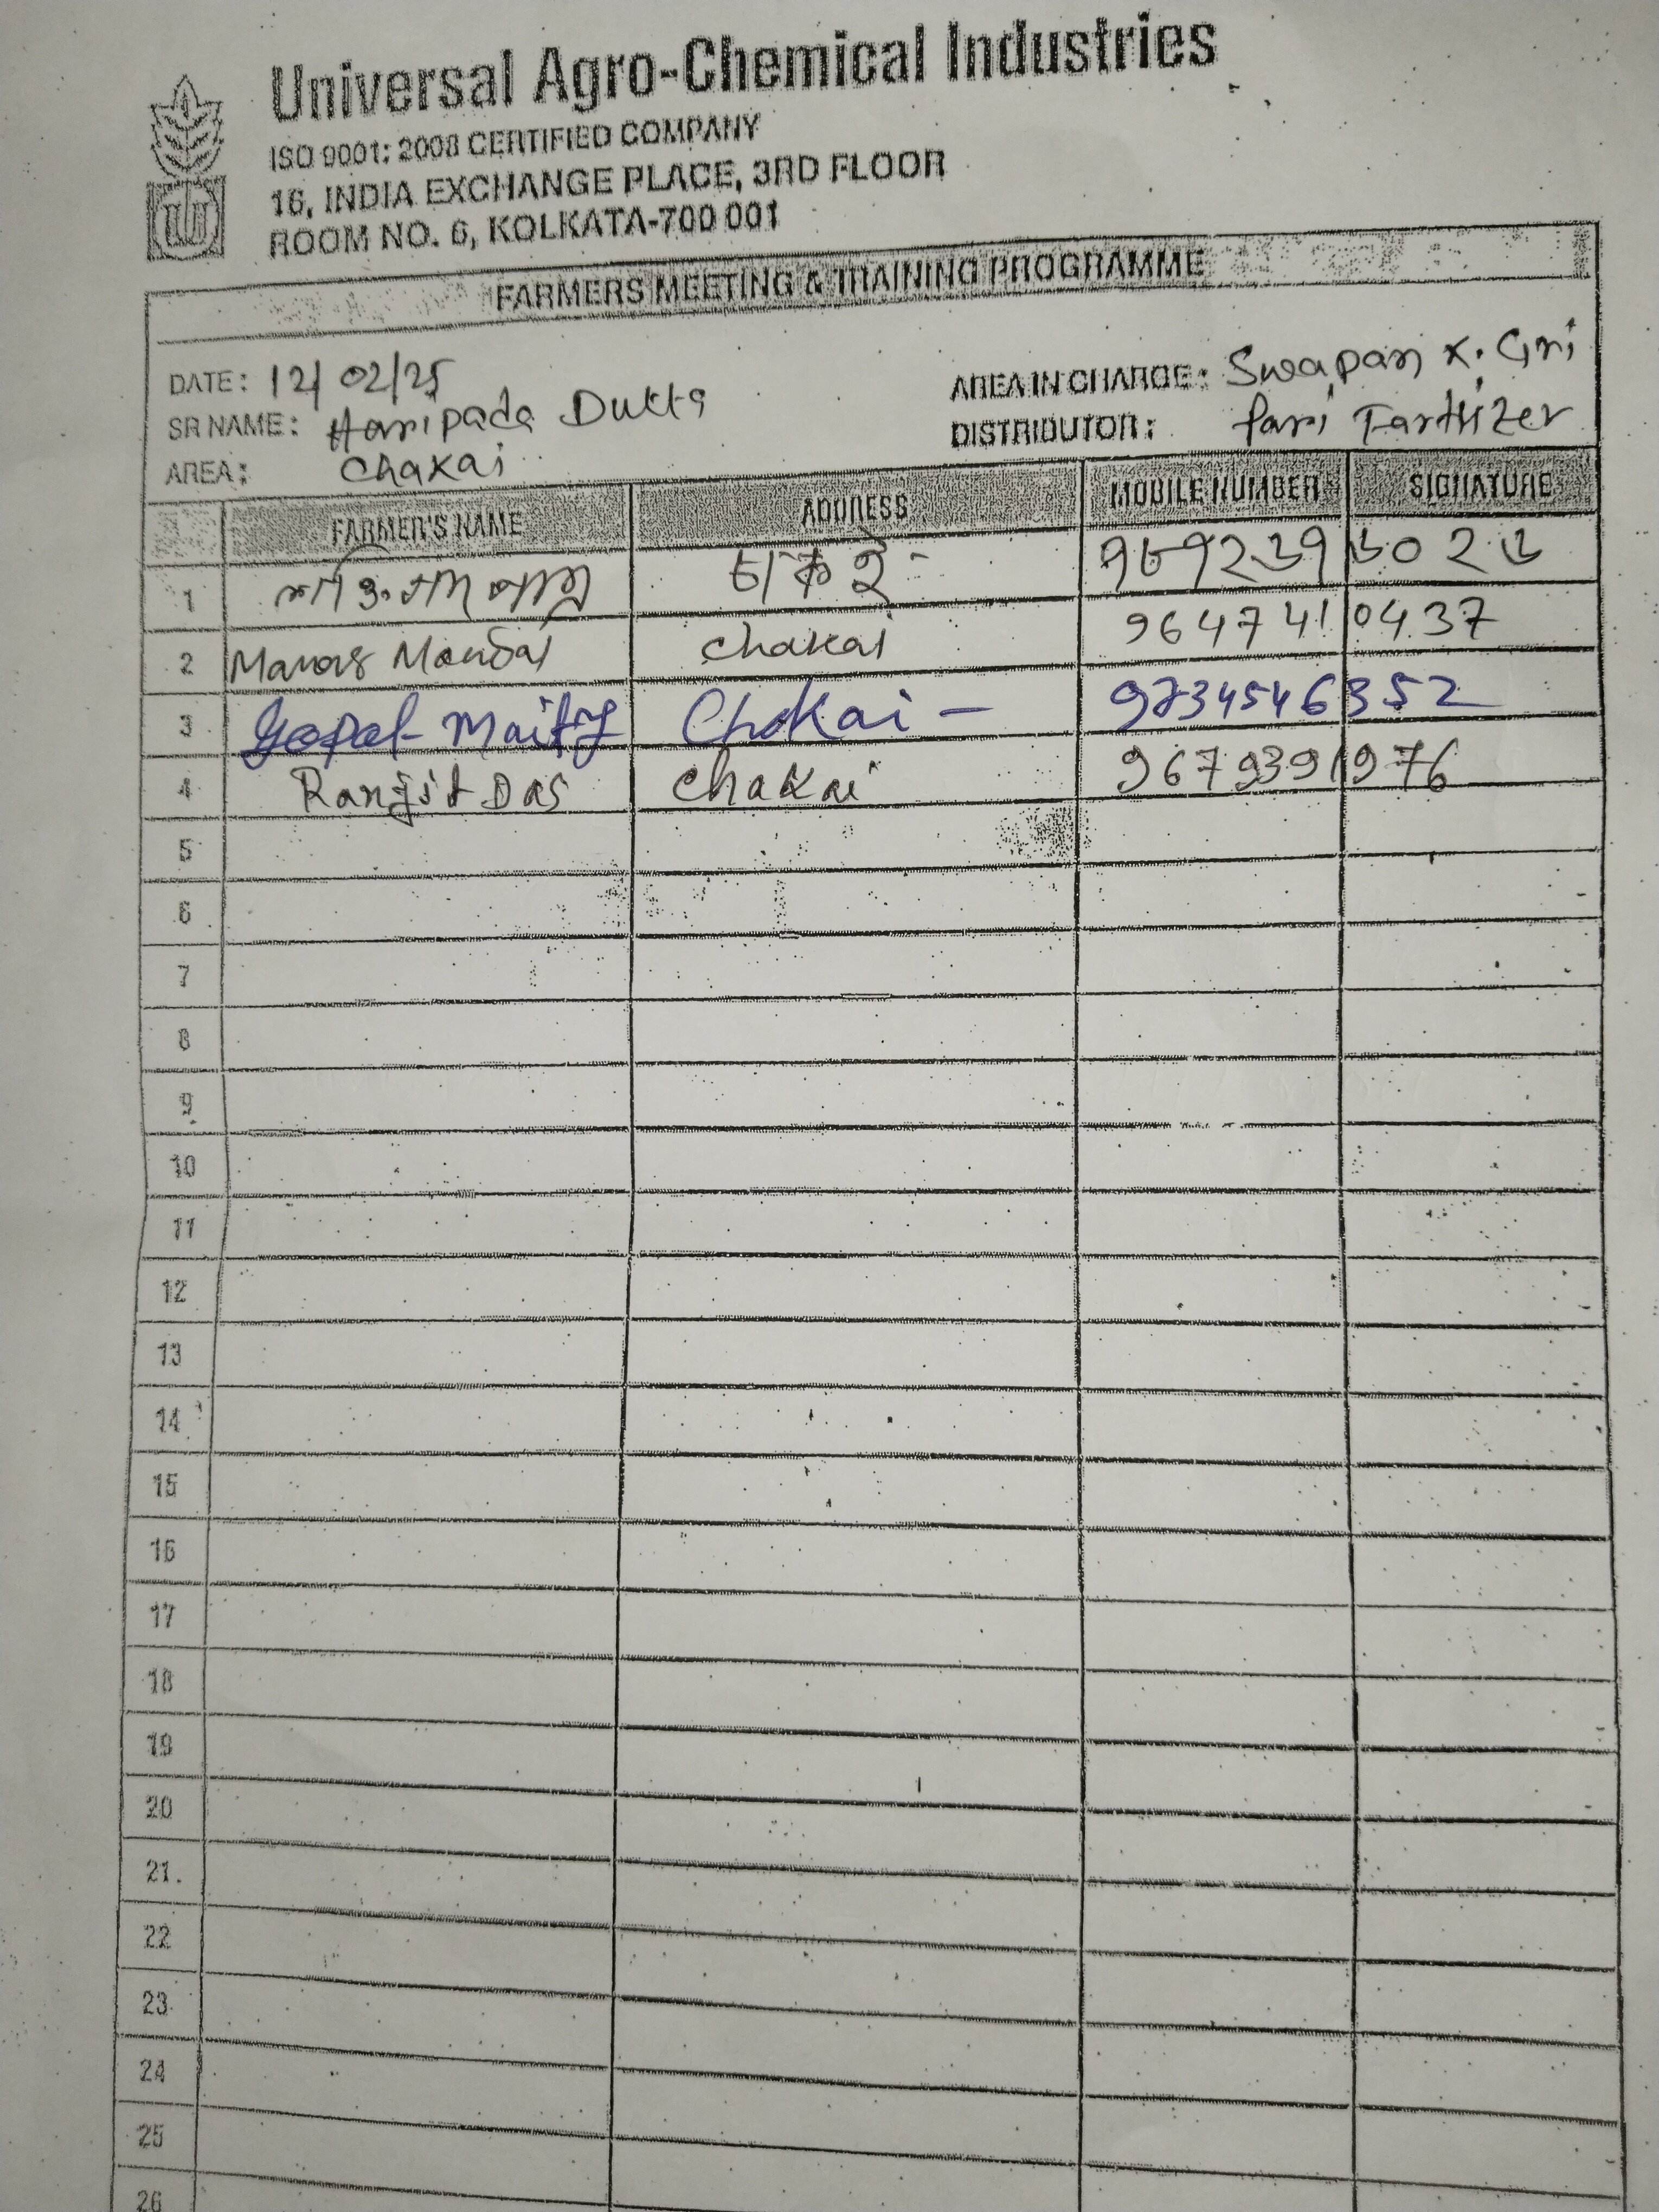 Universal Agro-Chemical Industries
ISO 9001: 2008 CERTIFIED COMPANY
16, INDIA EXCHANGE PLACE, 3RD FLOOR
ROOM NO. 6, KOLKATA-700 001
FARMERS MEETING & TRAINING PROGRAMME
DATE: 12/02/25
AREA IN CHARGE: Swapan K. Giri
SR NAME: Haripada Dutta
DISTRIBUTOR: Pari Fartilizer
AREA: Chakai
FARMER'S NAME ADDRESS MOBILE NUMBER SIGNATURE
1 চাকই -
2 Manas Mondal Chakai 9647410437
3 Gopal Maity Chakai - 9734546352
4 Ranjit Das Chakai 9679391976
5
6
7
8
9
10
11
12
13
14
15
16
17
18
19
20
21.
22
23
24
25
26